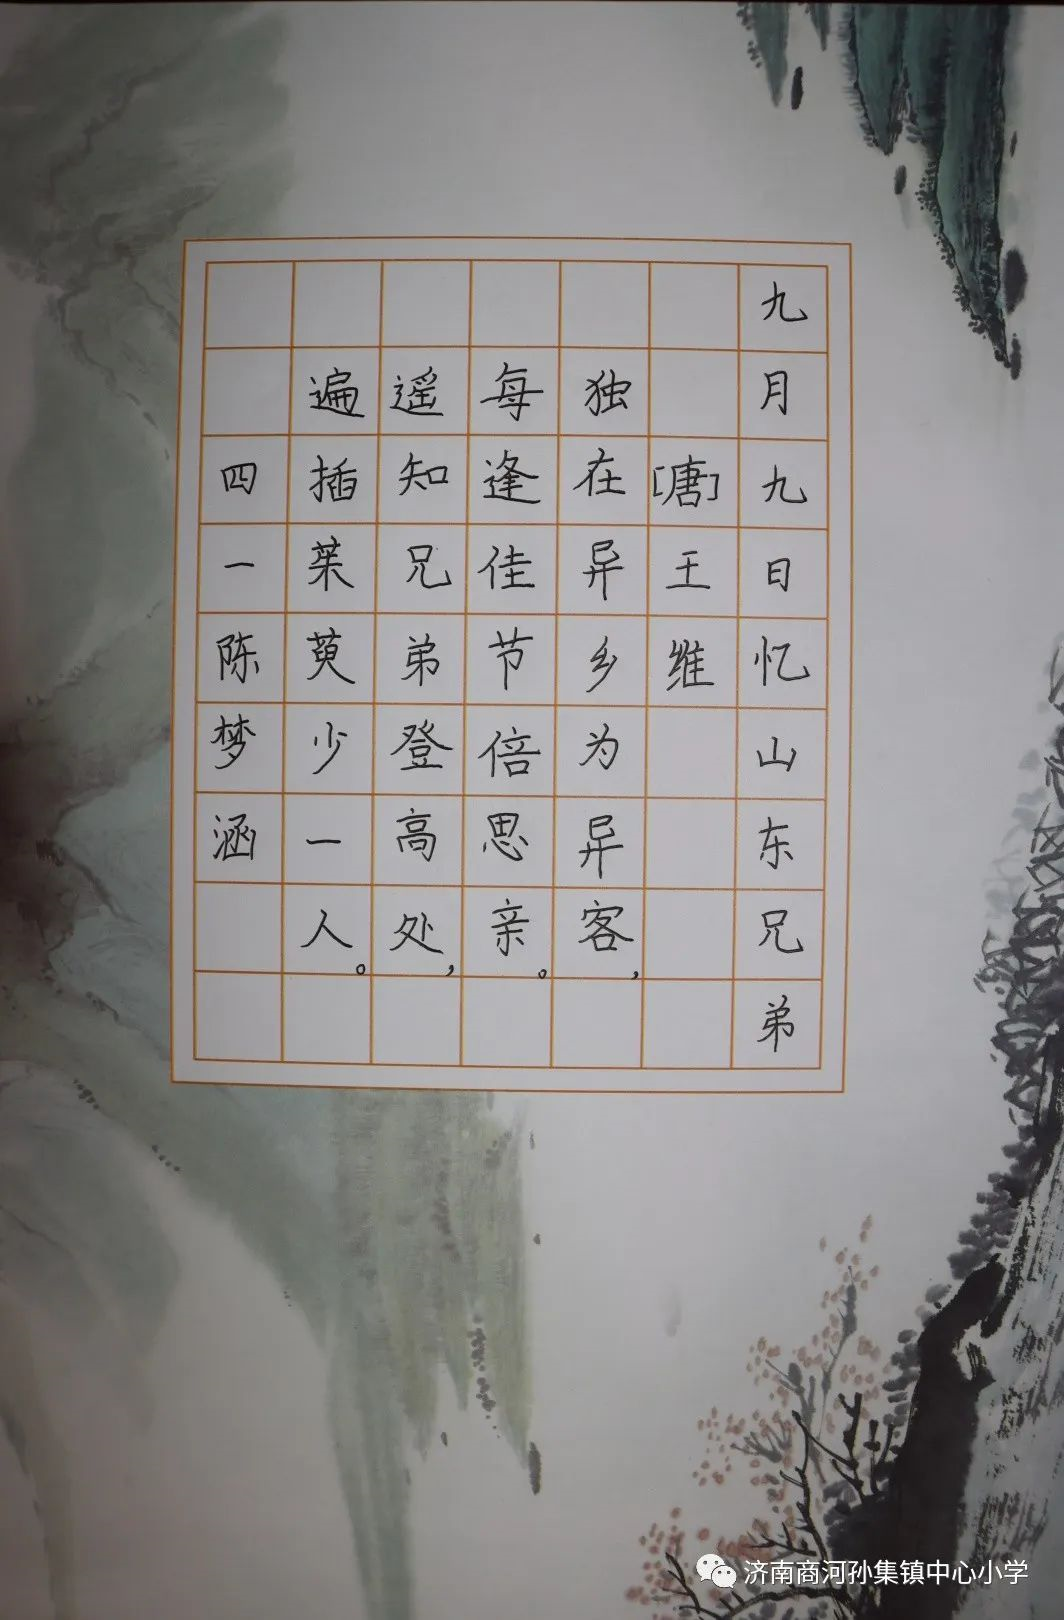 九月九日忆山东兄弟
[唐]王维
独在异乡为异客，
每逢佳节倍思亲。
遥知兄弟登高处，
遍插茱萸少一人。
四一陈梦涵
济南商河孙集镇中心小学